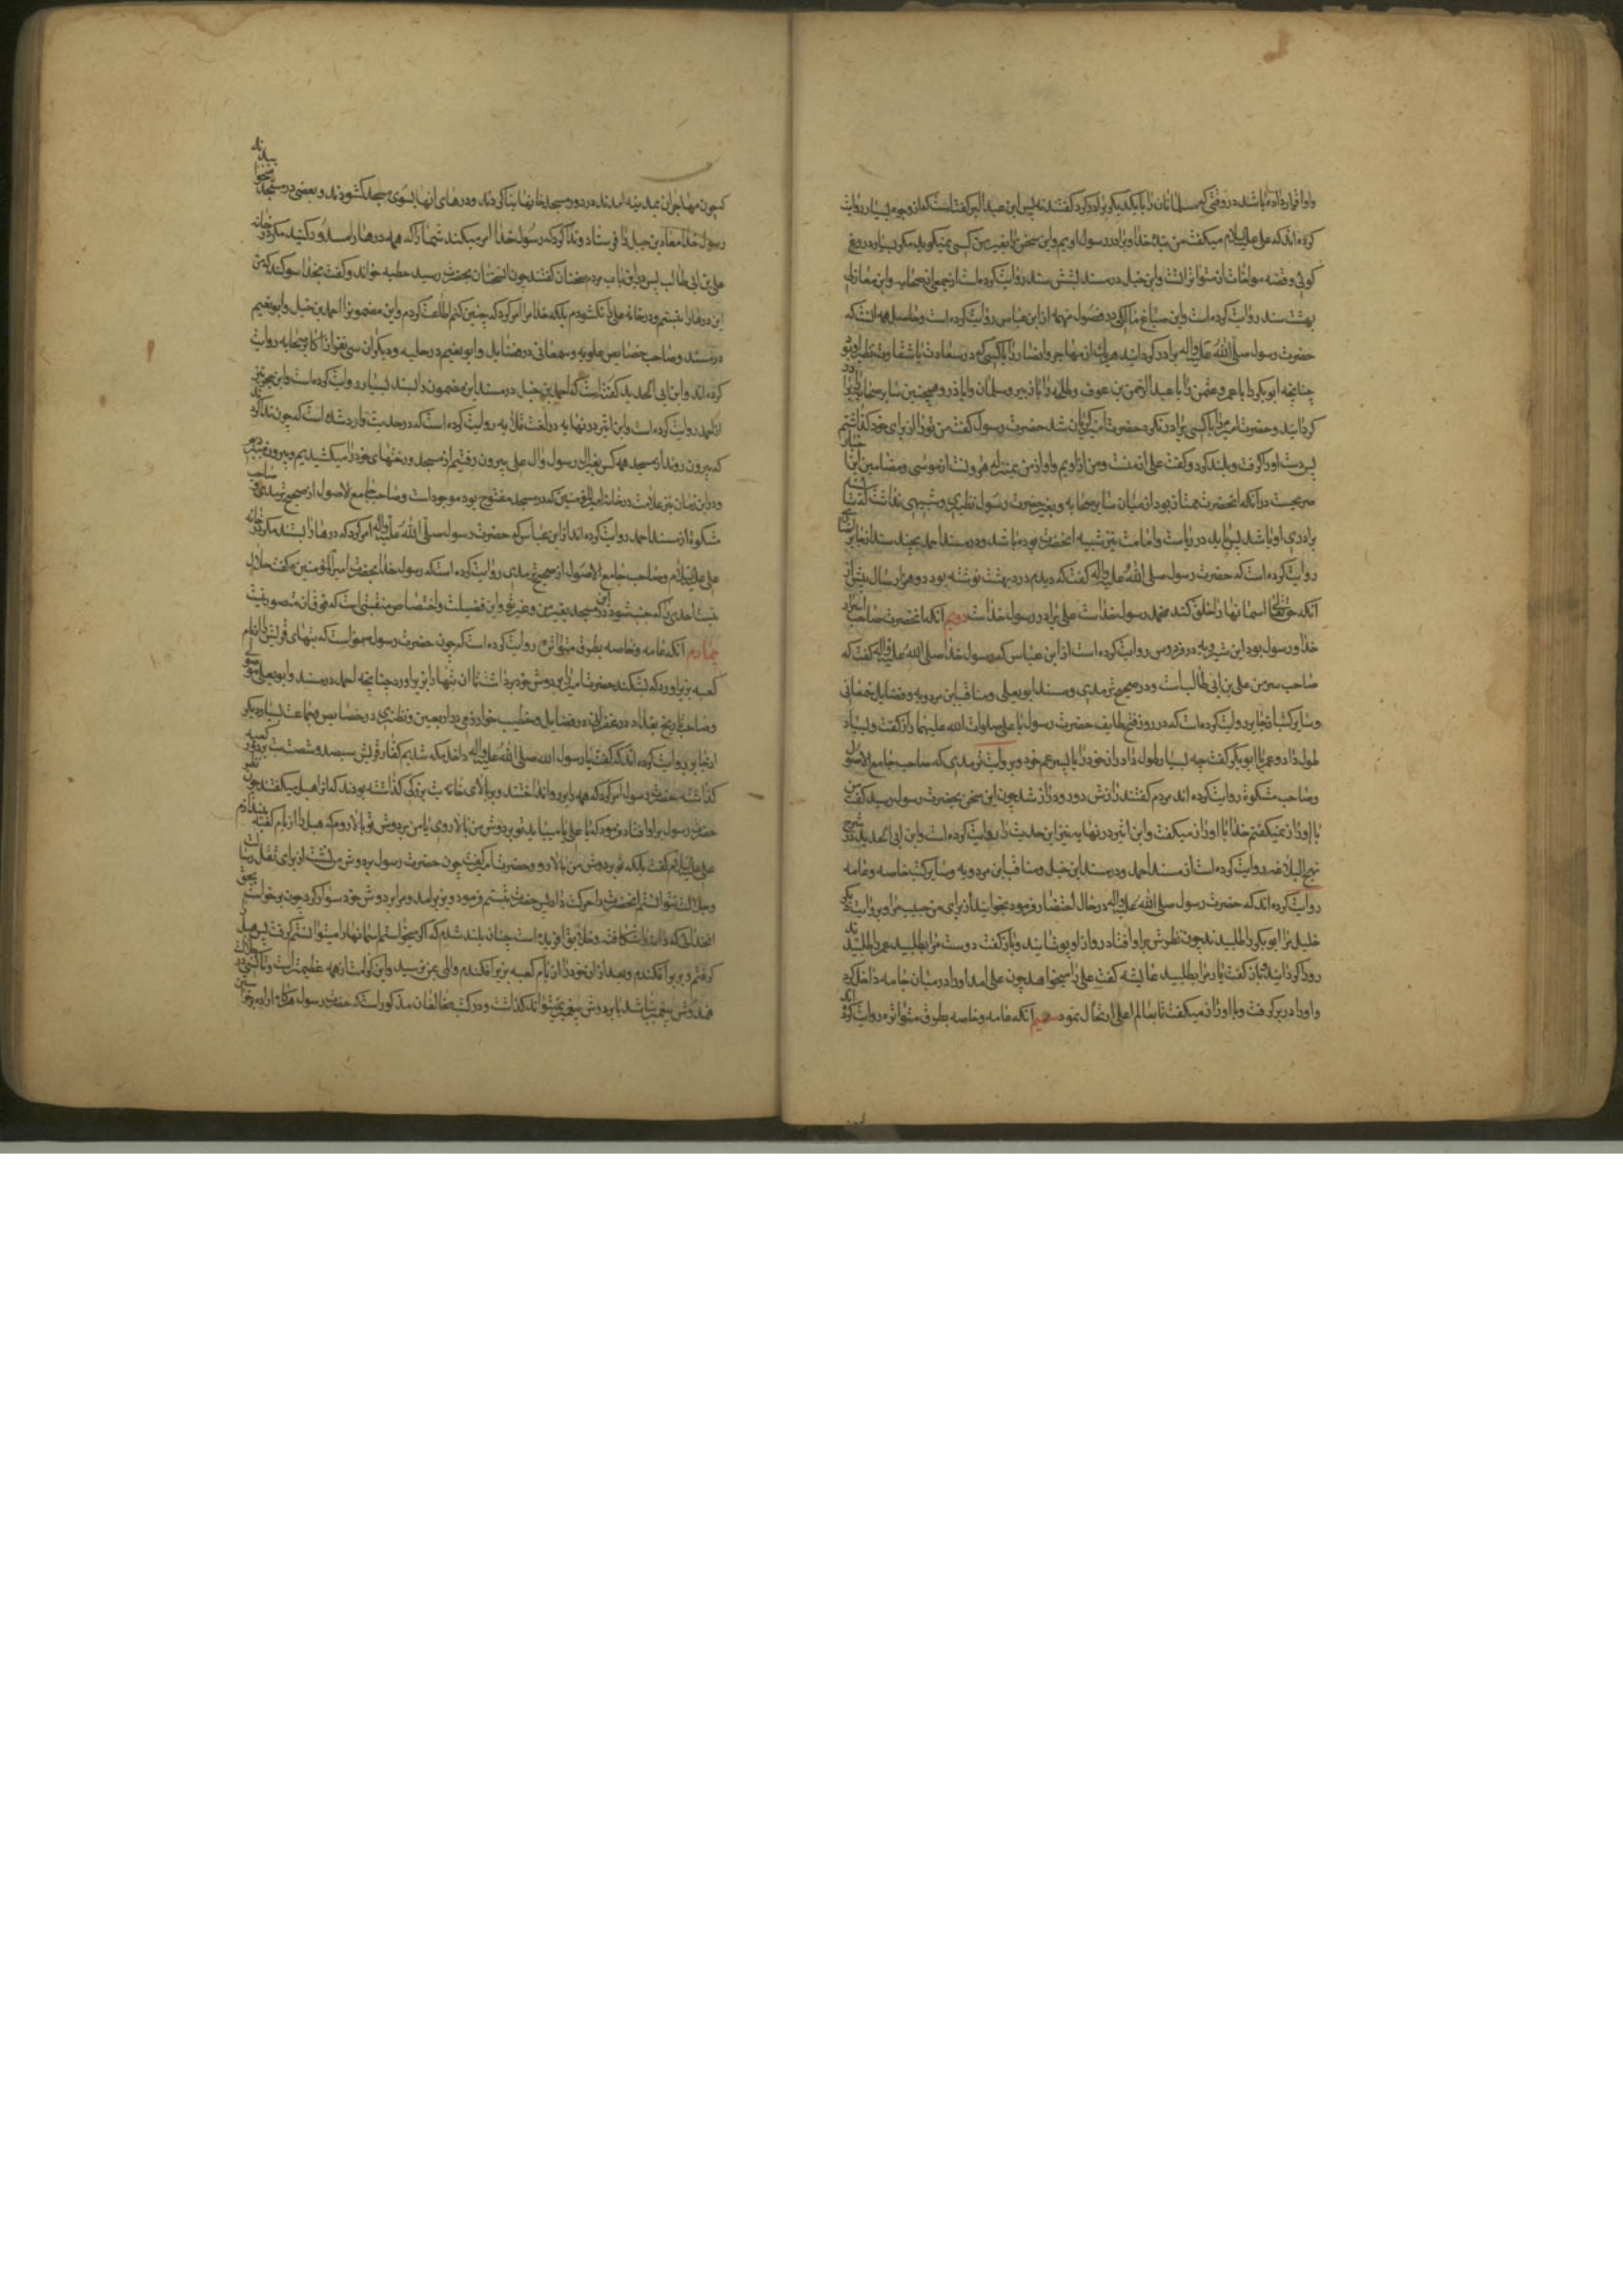 واو اقرار داده باشد در وقتی که مسلمانان را با یکدیگر برادر کرد گفتند پس ابن عبد البر گفته است که از وجوه بسیار روایت
کرده اند که علی علیه السلام میگفت من بنده خدا و برادر رسول اویم و این سخن را بغیر من کسی نمیگوید مگر بسیار دروغ
گوئی و قصه مواخات از متواتراتست و ابن حنبل در مسند بشش سند روایت کرده است از جمعی از صحابه و ابن مغازلی
بهشت سند روایت کرده است و ابن صباغ مالکی در فصول مهمه از ابن عباس روایت کرده است و حاصل همه انست که
حضرت رسول صلی الله علیه واله برادر گردانید هر یک از مهاجر و انصار را با کسی که در سعادت یا شقاوت نظیر او بود
چنانچه ابو بکر را با عمر و عثمن را با عبد الرحمن بن عوف و طلحه را با زبیر و سلمان را با ابا ذر و همچنین سایر صحابه را برادر
گردانید و حضرت امیر را با کسی برادر نکرد حضرت امیر گریان شد حضرت رسول گفت من تو را از برای خود گذاشتم
پس دست او را گرفت و بلند کرد و گفت علی از منست و من از اویم و او از من بمنزله هرونست از موسی و مضامین این اخبار
صریحست در آنکه انحضرت ممتاز بود از میان سایر صحابه و بغیر حضرت رسول نظیری و شبیهی نداشت که قابل
برادری او باشد پس باید در ریاست و امامت نیز شبیه انحضرت بوده باشد و در مسند احمد بچند سند از جابر انصاری
روایت کرده است که حضرت رسول صلی الله علیه واله گفت که دیدم در در بهشت نوشته بود دو هزار سال پیش از
آنکه حق تعالی اسمانها را خلق کند محمد رسول خداست علی برادر رسول خداست دویم آنکه انحضرت صاحب اسرار
خدا و رسول بود ابن شیرویه در فردوس روایت کرده است از ابن عباس که رسول خدا صلی الله علیه واله گفت که
صاحب سر من علی بن ابی طالب است و در صحیح ترمذی و مسند ابو یعلی و مناقب ابن مردویه و فضایل سمعانی
و سایر کتب از جابر روایت کرده است که در روز فتح طایف حضرت رسول با علی صلوات الله علیهما راز گفت و بسیار
طول داد و عمر با ابو بکر گفت چه بسیار طول داد راز خود را با پسر عم خود و بروایت ترمذی که صاحب جامع الاصول
و صاحب مشکوة روایت کرده اند مردم گفتند رازش دور و دراز شد چون این سخن بحضرت رسول رسید گفت من
با او راز نمیگفتم خدا با او راز میگفت و ابن اثیر در نهایه نیز این حدیث را روایت کرده است و ابن ابی الحدید در شرح
نهج البلاغه روایت کرده است از مسند احمد و در مسند ابن حنبل و مناقب ابن مردویه و سایر کتب خاصه و عامه
روایت کرده اند که حضرت رسول صلی الله علیه واله در حال احتضار فرمود بخوانید از برای من حبیب مرا و بروایت دیگر
خلیل مرا ابو بکر را طلبیدند چون نظرش بر او افتاد رو از او پوشانید و باز گفت دوست مرا بطلبید عمر را طلبیدند
رو گردانید و باز گفت یار مرا بطلبید عایشه گفت علی را میخواهد چون علی امد او را در میان جامه داخل کرد
و او را در بر گرفت و با او راز میگفت تا بعالم اعلی ارتحال نمود سیم آنکه عامه و خاصه بطرق متواتره روایت کرده اند
که چون مهاجران بمدینه امدند در دور مسجد خانها بنا کردند و درهای انها بسوی مسجد گشودند و بعضی در مسجد میخوابیدند
رسول خدا معاذ بن جبل را فرستاد و ندا کرد که رسول خدا امر میکند شما را که همه درها را مسدود کنید مگر در خانه
علی بن ابی طالب پس در این باب مردم سخنان گفتند چون انسخنان بحضرت رسید خطبه خواند و گفت بخدا سوگند که من
این درها را نبستم و در خانه علی را نگشودم بلکه خدا مرا امر کرد که چنین کنم اطاعت کردم و این مضمون را احمد بن حنبل و ابو نعیم
در مسند و صاحب خصایص علویه و سمعانی در فضایل و ابو نعیم در حلیه و دیگران سی نفر از اکابر صحابه روایت
کرده اند و ابن ابی الحدید گفته است که احمد بن حنبل در مسند این مضمون را بسند بسیار روایت کرده است و ابن حجر نیز
از احمد روایت کرده است و ابن اثیر در نهایه در لغت قلا یه روایت کرده است که در حدیث وارد شده است که چون ندا کردند
که بیرون روند از مسجد همه کس بغیر ال رسول و ال علی بیرون رفتیم از مسجد و رختهای خود را میکشیدیم و بیرون میبردیم
و در این زمان نیز علامت در خانه امیر المؤمنین که در مسجد مفتوح بود موجود است و صاحب جامع الاصول از صحیح ترمذی و صاحب
مشکوة از مسند احمد روایت کرده اند از ابن عباس که حضرت رسول صلی الله علیه واله امر کرد که درها را ببندند مگر در خانه
علی علیه السلام و صاحب جامع الاصول از صحیح ترمذی روایت کرده است که رسول خدا بحضرت امیر المؤمنین گفت حلال
نیست احدی را که جنب شود در این مسجد بغیر من و غیر تو و این فضیلت و اختصاص منقبتی است که فوق ان متصور نیست
چهارم آنکه عامه و خاصه بطرق متواتره روایت کرده است که چون حضرت رسول میخواست که بتهای قریش را از بام
کعبه بزیر اورد که بشکند حضرت امیر را بر دوش خود برداشت تا ان بتها را بزیر اورد چنانچه احمد در مسند و ابو یعلی موصلی
و صاحب تاریخ بغداد و زعفرانی در فضایل و خطیب خوارزمی در اربعین و نطنزی در خصایص و جماعت بسیار دیگر
از جابر روایت کرده اند که گفت با رسول الله صلی الله علیه واله داخل مکه شدیم کفار قریش سیصد و شصت بت بر دور کعبه
گذاشته حضرت رسول امر کرد که همه را بر رو انداختند و بر بالای خانه بت بزرگی گذاشته بودند که انرا هبل میگفتند چون نظر
حضرت رسول بر او افتاد فرمود که یا علی یا میباید تو بر دوش من بالا روی یا من بر دوش تو بالا روم که هبل را از بام کعبه بیندازم
علی علیه السلام گفت بلکه تو بر دوش من بالا رو و حضرت امیر گفت چون حضرت رسول بر دوش من نشست از برای ثقل رسالت
و جلالت نتوانستم انحضرت را حرکت داد پس حضرت تبسم فرمود و بزیر امد و مرا بر دوش خود سوار کرد چون برخواست بحق
انخدائی که دانه را شکافته و خلایق افریده است چنان بلند شدم که اگر میخواستم اسمانها را میتوانستم گرفت پس هبل را
گرفتم و بزیر افکندم و بعد از ان خود را از بام کعبه بزیر افکندم و المی بمن نرسید